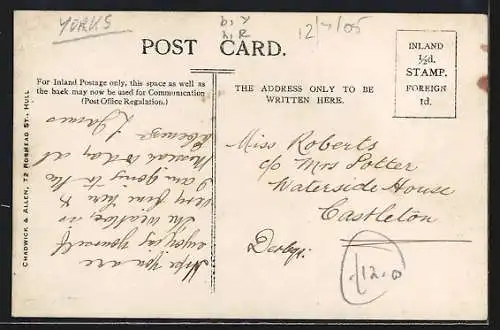 YORKS
12/7/05
POST CARD.
For Inland Postage only, this space as well as
the back may now be used for Communication
(Post Office Regulation.)
THE ADDRESS ONLY TO BE
WRITTEN HERE.
INLAND
½d.
STAMP.
FOREIGN
1d.
Miss Roberts
c/o Mrs Potter
Waterside House
Castleton
Derbys.
12.0
Hope you are
enjoying yourself
The weather is
very fine here &
I am going to the
to day at
Ebenezer
James
CHADWICK & ALLEN, 72 ROSMEAD ST., HULL